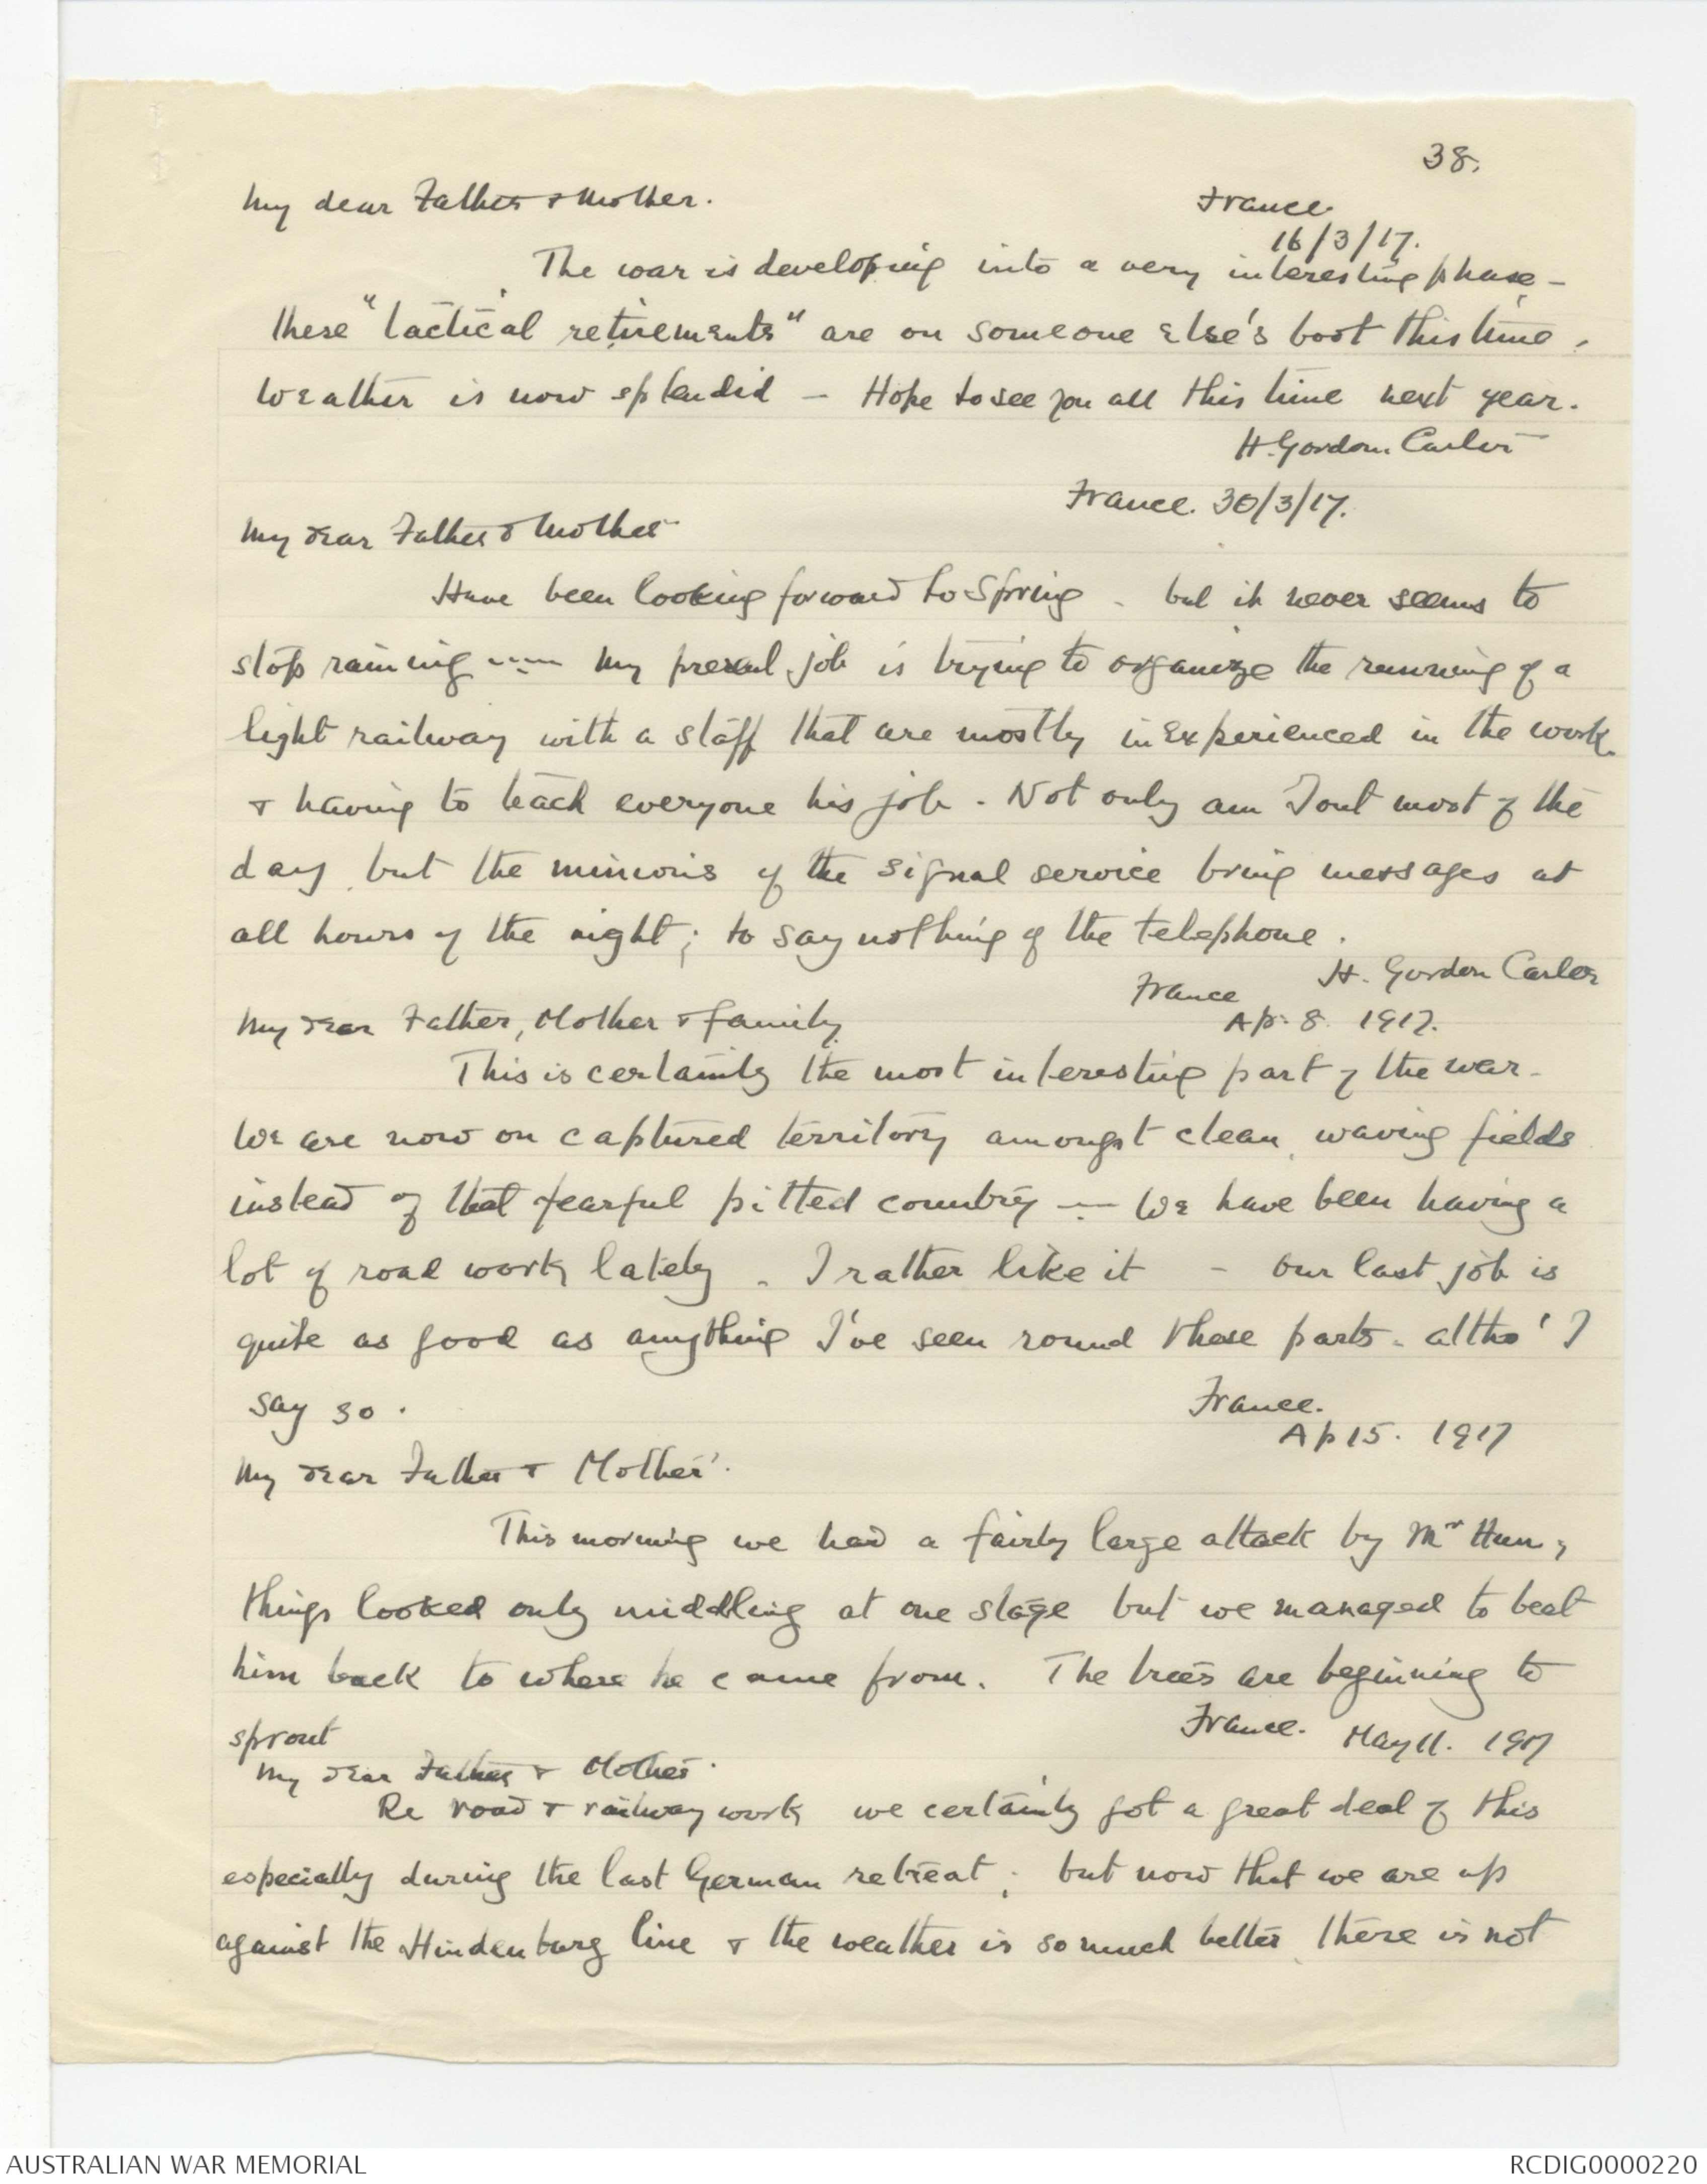 38.
My dear Father & Mother.
France.
16/3/17.
The war is developing into a very interesting phase -
these "tactical retirements" are on someone else's boot this time.
Weather is now splendid - Hope to see you all this time next year.
H. Gordon Carter
France. 30/3/17.
My dear Father & Mother
Have been looking forward to Spring - but it never seems to
stop raining ---- My present job is trying to organize the running of a
light railway with a staff that are mostly inexperienced in the work
& having to teach everyone his job. Not only am I out most of the
day, but the minions of the signal service bring messages at
all hours of the night; to say nothing of the telephone.
H. Gordon Carter
France
Ap. 8. 1917.
My dear Father, Mother & family
This is certainly the most interesting part of the war.
We are now on captured territory amongst clean, waving fields
instead of that fearful pitted country --- We have been having a
lot of road work lately. I rather like it - our last job is
quite as good as anything I've seen round these parts - altho' I
say so.
France.
Ap 15. 1917
My dear Father & Mother.
This morning we had a fairly large attack by Mr Hun,
things looked only middling at one stage but we managed to beat
him back to where he came from. The trees are beginning to
sprout
France. May 11. 1917
My dear Father & Mother.
Re road & railway work we certainly got a great deal of this
especially during the last German retreat; but now that we are up
against the Hindenburg line & the weather is so much better, there is not
AUSTRALIAN WAR MEMORIAL
RCDIG0000220